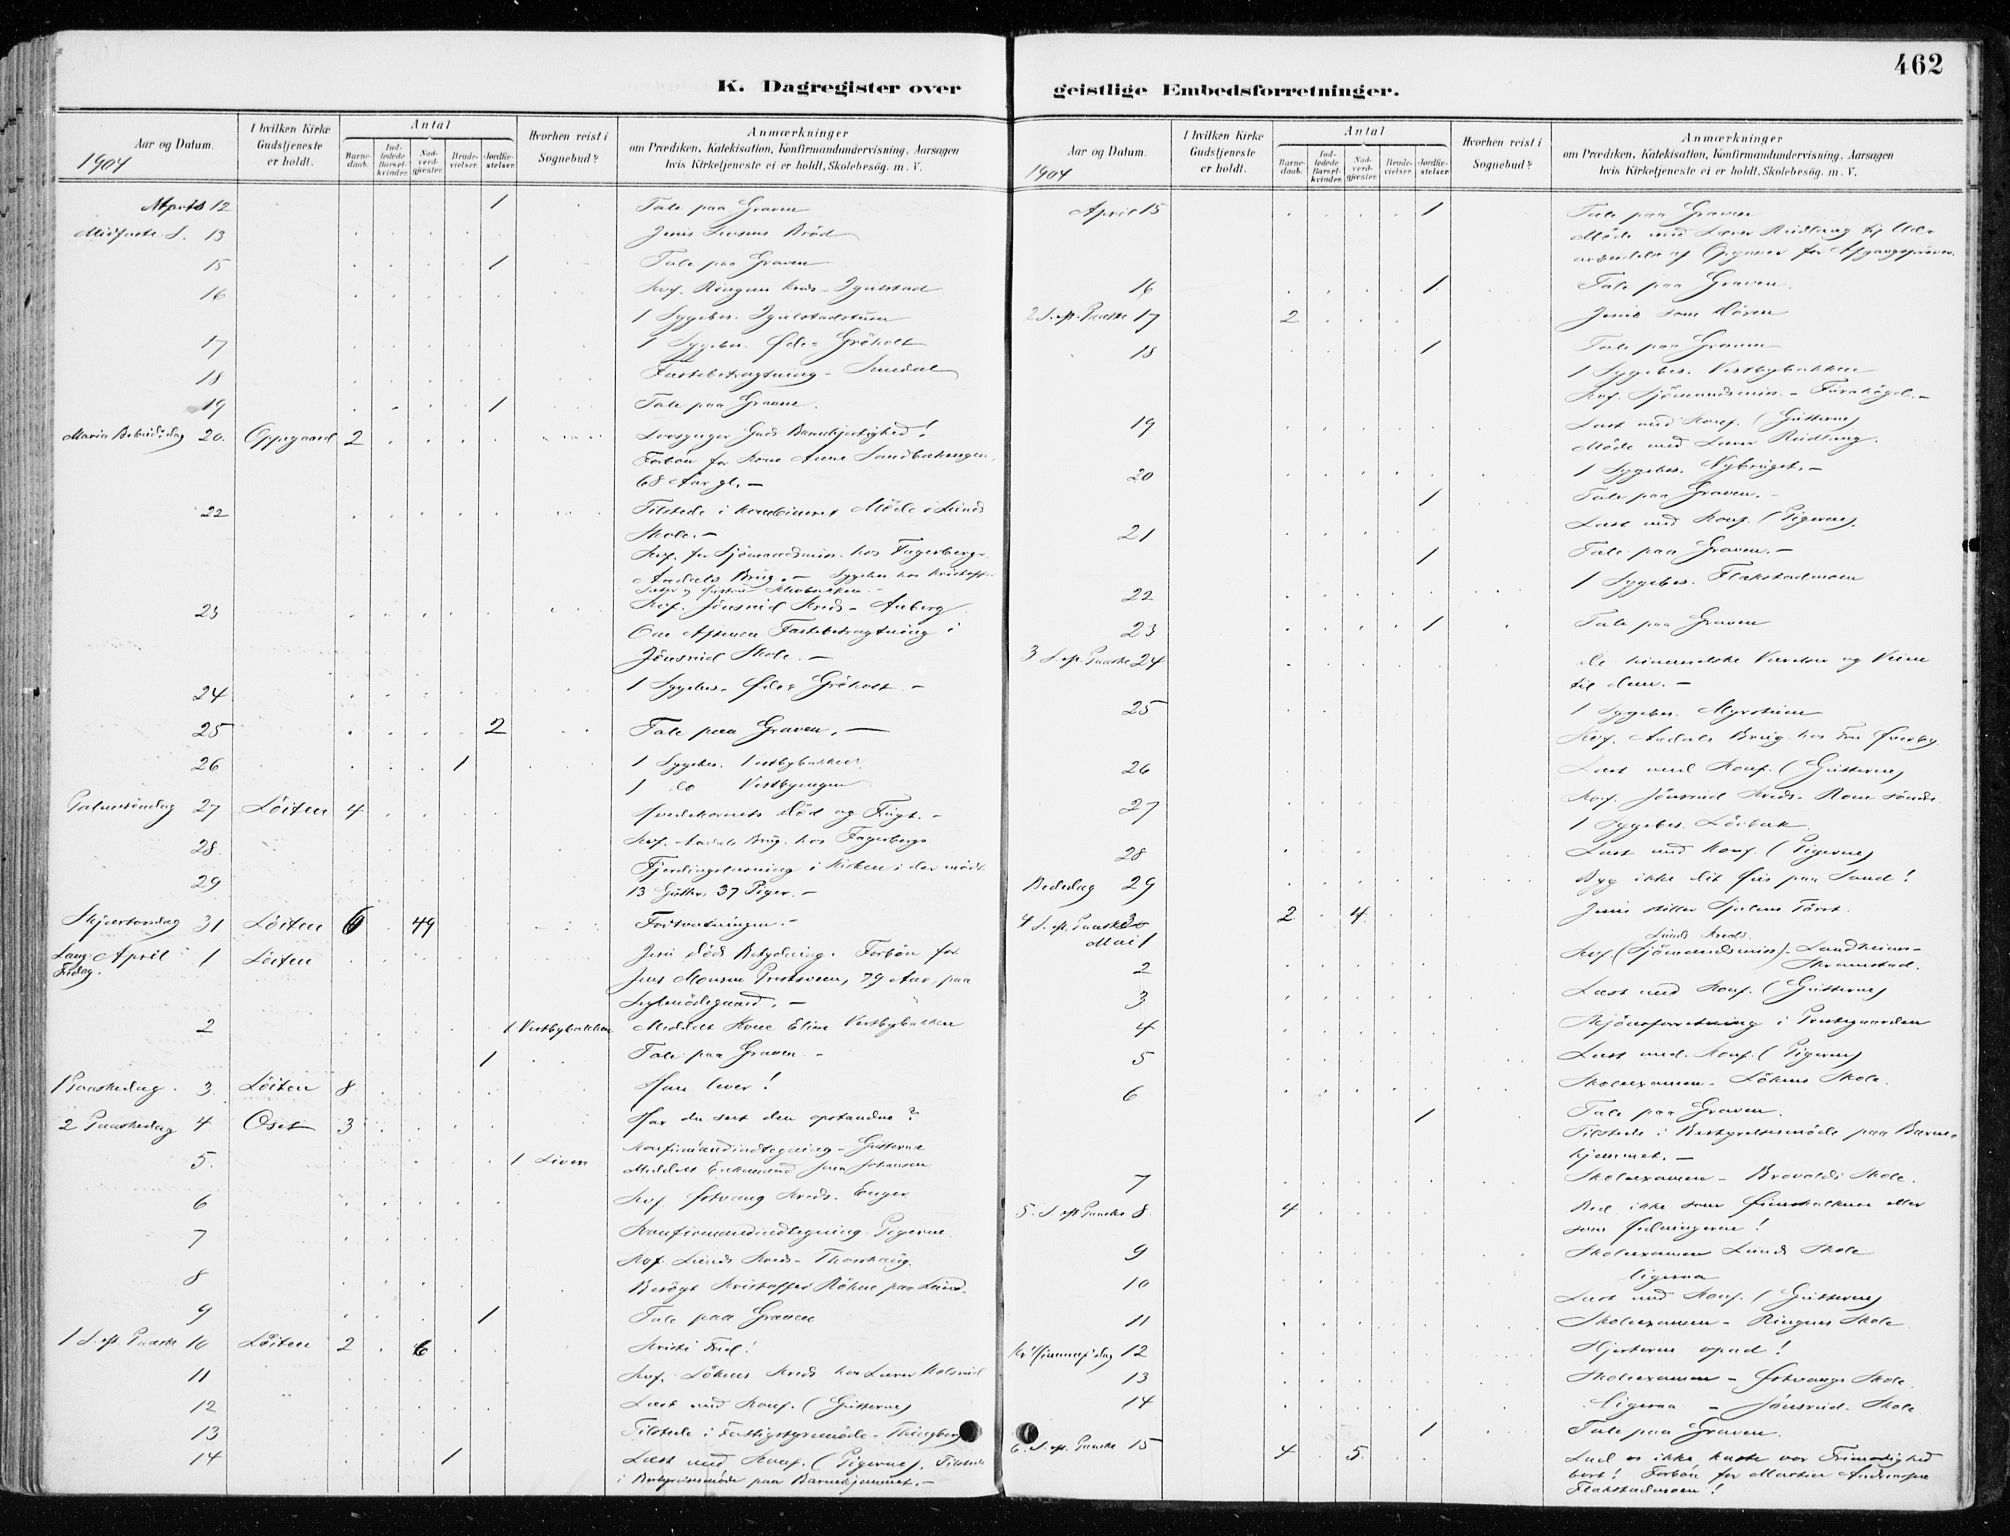 462
K. Dagregister over geistlige Embedsforretninger.
Aar og Datum.
1904
I hvilken Kirke
Gudstjeneste
er holdt.
Antal
Barne-
daab.
Ind-
ledede
Barsel-
kvinder.
Nad-
verd-
gjæster.
Brude-
vielser.
Jordfæ-
stelser.
Hvorhen reist i
Sognebud?
Anmærkninger
om Prædiken, Katekisation, Konfirmandundervisning, Aarsagen
hvis Kirketjeneste ei er holdt, Skolebesøg. m. V.
Marts 12 1 Tale paa Graven
Midfaste S. 13 Jesus Brød
15 1 Tale paa Graven
16 Kvf. Ringnes Kreds - Igulstad
1 Sygebes. Igulstadstuen
17 1 Sygebes. Gröholt
18 Fastebetragtning - Smedal
19 1 Tale paa Graven.
Maria Bebud.dag 20. Oppegaard 2 Lovsynger Guds Barmhjertighed!
Forbøn for Kone Anne Sandbakengen,
68 Aar gl. -
22 Tilstede i kombineret Møde i Lunds
Skole. -
Kvf. for Sjömandsmis. hos Fagerberg -
Aadals Brug. - Sygebes. hos Kristoffer
23 Kvf. Jönsrud Kreds - Aaberg
Om Aftenen Fastebetragtning i
Jönsrud Skole. -
24 1 Sygebes. Gröholt -
25 2 Tale paa Graven. -
26 1 1 Sygebes. Vestbybakken
1 do Vestbyengen
Palmesöndag 27 Löiten 4 Hvedekornets Död og Frugt. -
28 Kvf. Aadals Brug. hos Fagerberg
29 Fjerdingslæsning i Kirken; der mödte
13 Gutter, 37 Piger. -
Skjærtorsdag 31 Löiten 6 49 Fodtvætningen. -
Lang- April 1 Löiten Jesu Döds Betydning. Forbön for
Fredag.
Jens Monsen Prestsveen, 79 Aar, paa
2 1 Vestbybakken Meddelt Kone Eline Vestbybakken
1 Tale paa Graven -
1 Paaskedag. 3. Löiten 8 Han lever!
2 Paaskedag 4 Oset 3 Har du seet den opstandne?
5. Konfirmandindtegning - Gutterne
1 Liven Meddelt Enkemand Johansen
6 Kvf. Östvang Kreds. Enger
7 Konfirmandindtegning Pigerne.
Kvf. Lunds Kreds - Thorshaug.
8 Besögt Kristoffer Röhne paa Lund.
9 1 Tale paa Graven
1 S. eft. Paaske 10 Löiten 2 6 Kristi Fred!
11 Kvf. Lökens Kreds hos Lærer Kolsrud
12 Læst med Konf. (Gutterne)
13 Tilstede i Fattigstyremöde - Thingberg
14 1 Læst med Konf. (Pigerne). Tilstede
i Bestyrelsesmöde paa Barnehjemmet. -
Aar og Datum.
1904
I hvilken Kirke
Gudstjeneste
er holdt.
Antal
Barne-
daab.
Ind-
ledede
Barsel-
kvinder.
Nad-
verd-
gjæster.
Brude-
vielser.
Jordfæ-
stelser.
Hvorhen reist i
Sognebud?
Anmærkninger
om Prædiken, Katekisation, Konfirmandundervisning, Aarsagen
hvis Kirketjeneste ei er holdt, Skolebesög. m. V.
April 15 1 Tale paa Graven
Möde med Lærer Rudlang til Ud-
arbeidelse af Opgaver for Afgangspröven.
16 1 Tale paa Graven.
2 S. eft. Paaske 17 2 Jesus som Dören
18 1 Tale paa Graven
1 Sygebes. Vestbybakken
Kvf. Sjömandsmis. - Furuhögd. -
19 Læst med Konf. (Gutterne)
Möde med Lærer Rudlang.
20 1 Sygebes. Nybruget. -
1 Tale paa Graven. -
21 Læst med Konf. (Pigerne).
1 Tale paa Graven. -
22 1 Sygebes. Flakstadmoen
23 1 Tale paa Graven
3 S. eft. Paaske 24 De himmelske og Veien
til dem. -
25 1 Sygebes. Myrstuen
Kvf. Aadals Brug. hos Fru Överby.
26 Læst med Konf. (Gutterne)
27 Kvf. Jönsrud Kreds.
1 Sygebes. Lövbak
28 Læst med Konf. (Pigerne)
Bededag 29 Byg ikke dit Hus paa Sand!
4 S. eft. Paaske 2 4 Jesus stiller Sjælens Törst.
Mai 1 Lunds Kreds.
2 Kvf. (Sjömandsmis). Landheim -
Skramstad.
3 Læst med Konf. (Gutterne)
4 Skjönsforretning i Prestegaarden
5 Læst med Konf. (Pigerne)
6 Skoleexamen - Lökens Skole.
1 Tale paa Graven.
Tilstede i Bestyrelsesmöde paa Barne-
hjemmet. -
7 Skoleexamen - Brovolds Skole.
5. S. eft. Paaske 8. 4 Bed ikke som eller
som Hedningerne!
9 Skoleexamen Lunds Skole
10 ligesaa
Læst med Konf. (Gutterne)
11 Skoleexamen - Ringnes Skole
Kr. Himmelf.dag 12 Hjerterne opad!
13 Skoleexamen - Östvangs Skole
14 Ligesaa - Jönsrud Skole
1 Tale paa Graven.
6. S. eft. Paaske 15 4 5 Lad os ikke kaste vor Frimodighed
bort! Forbön for
Flakstadmoen!